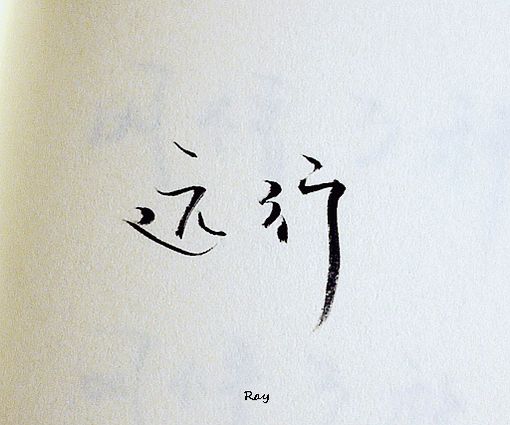 远行
Ray